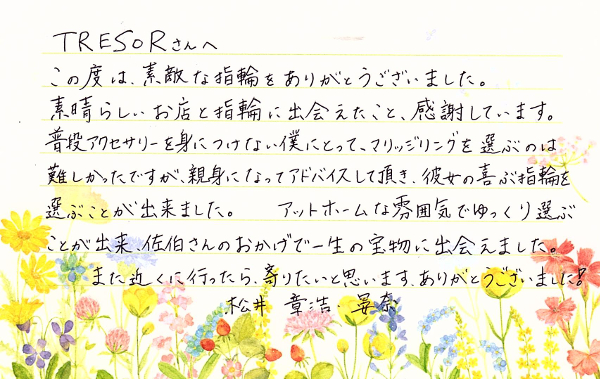 TRESORさんへ
この度は、素敵な指輪をありがとうございました。
素晴らしいお店と指輪に出会えたこと、感謝しています。
普段アクセサリーを身につけない僕にとって、マリッジリングを選ぶのは
難しかったですが、親身になってアドバイスして頂き、彼女の喜ぶ指輪を
選ぶことが出来ました。 アットホームな雰囲気でゆっくり選ぶ
ことが出来、佐伯さんのおかげで一生の宝物に出会えました。
また近くに行ったら、寄りたいと思います。ありがとうございました!
松井 章浩 晏奈